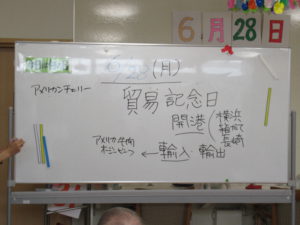 6月28日
6/28(月)
アメリカンチェリー
貿易記念日
開港
横浜
長崎
アメリカ牛肉
オレンジ
← 輸入 輸出